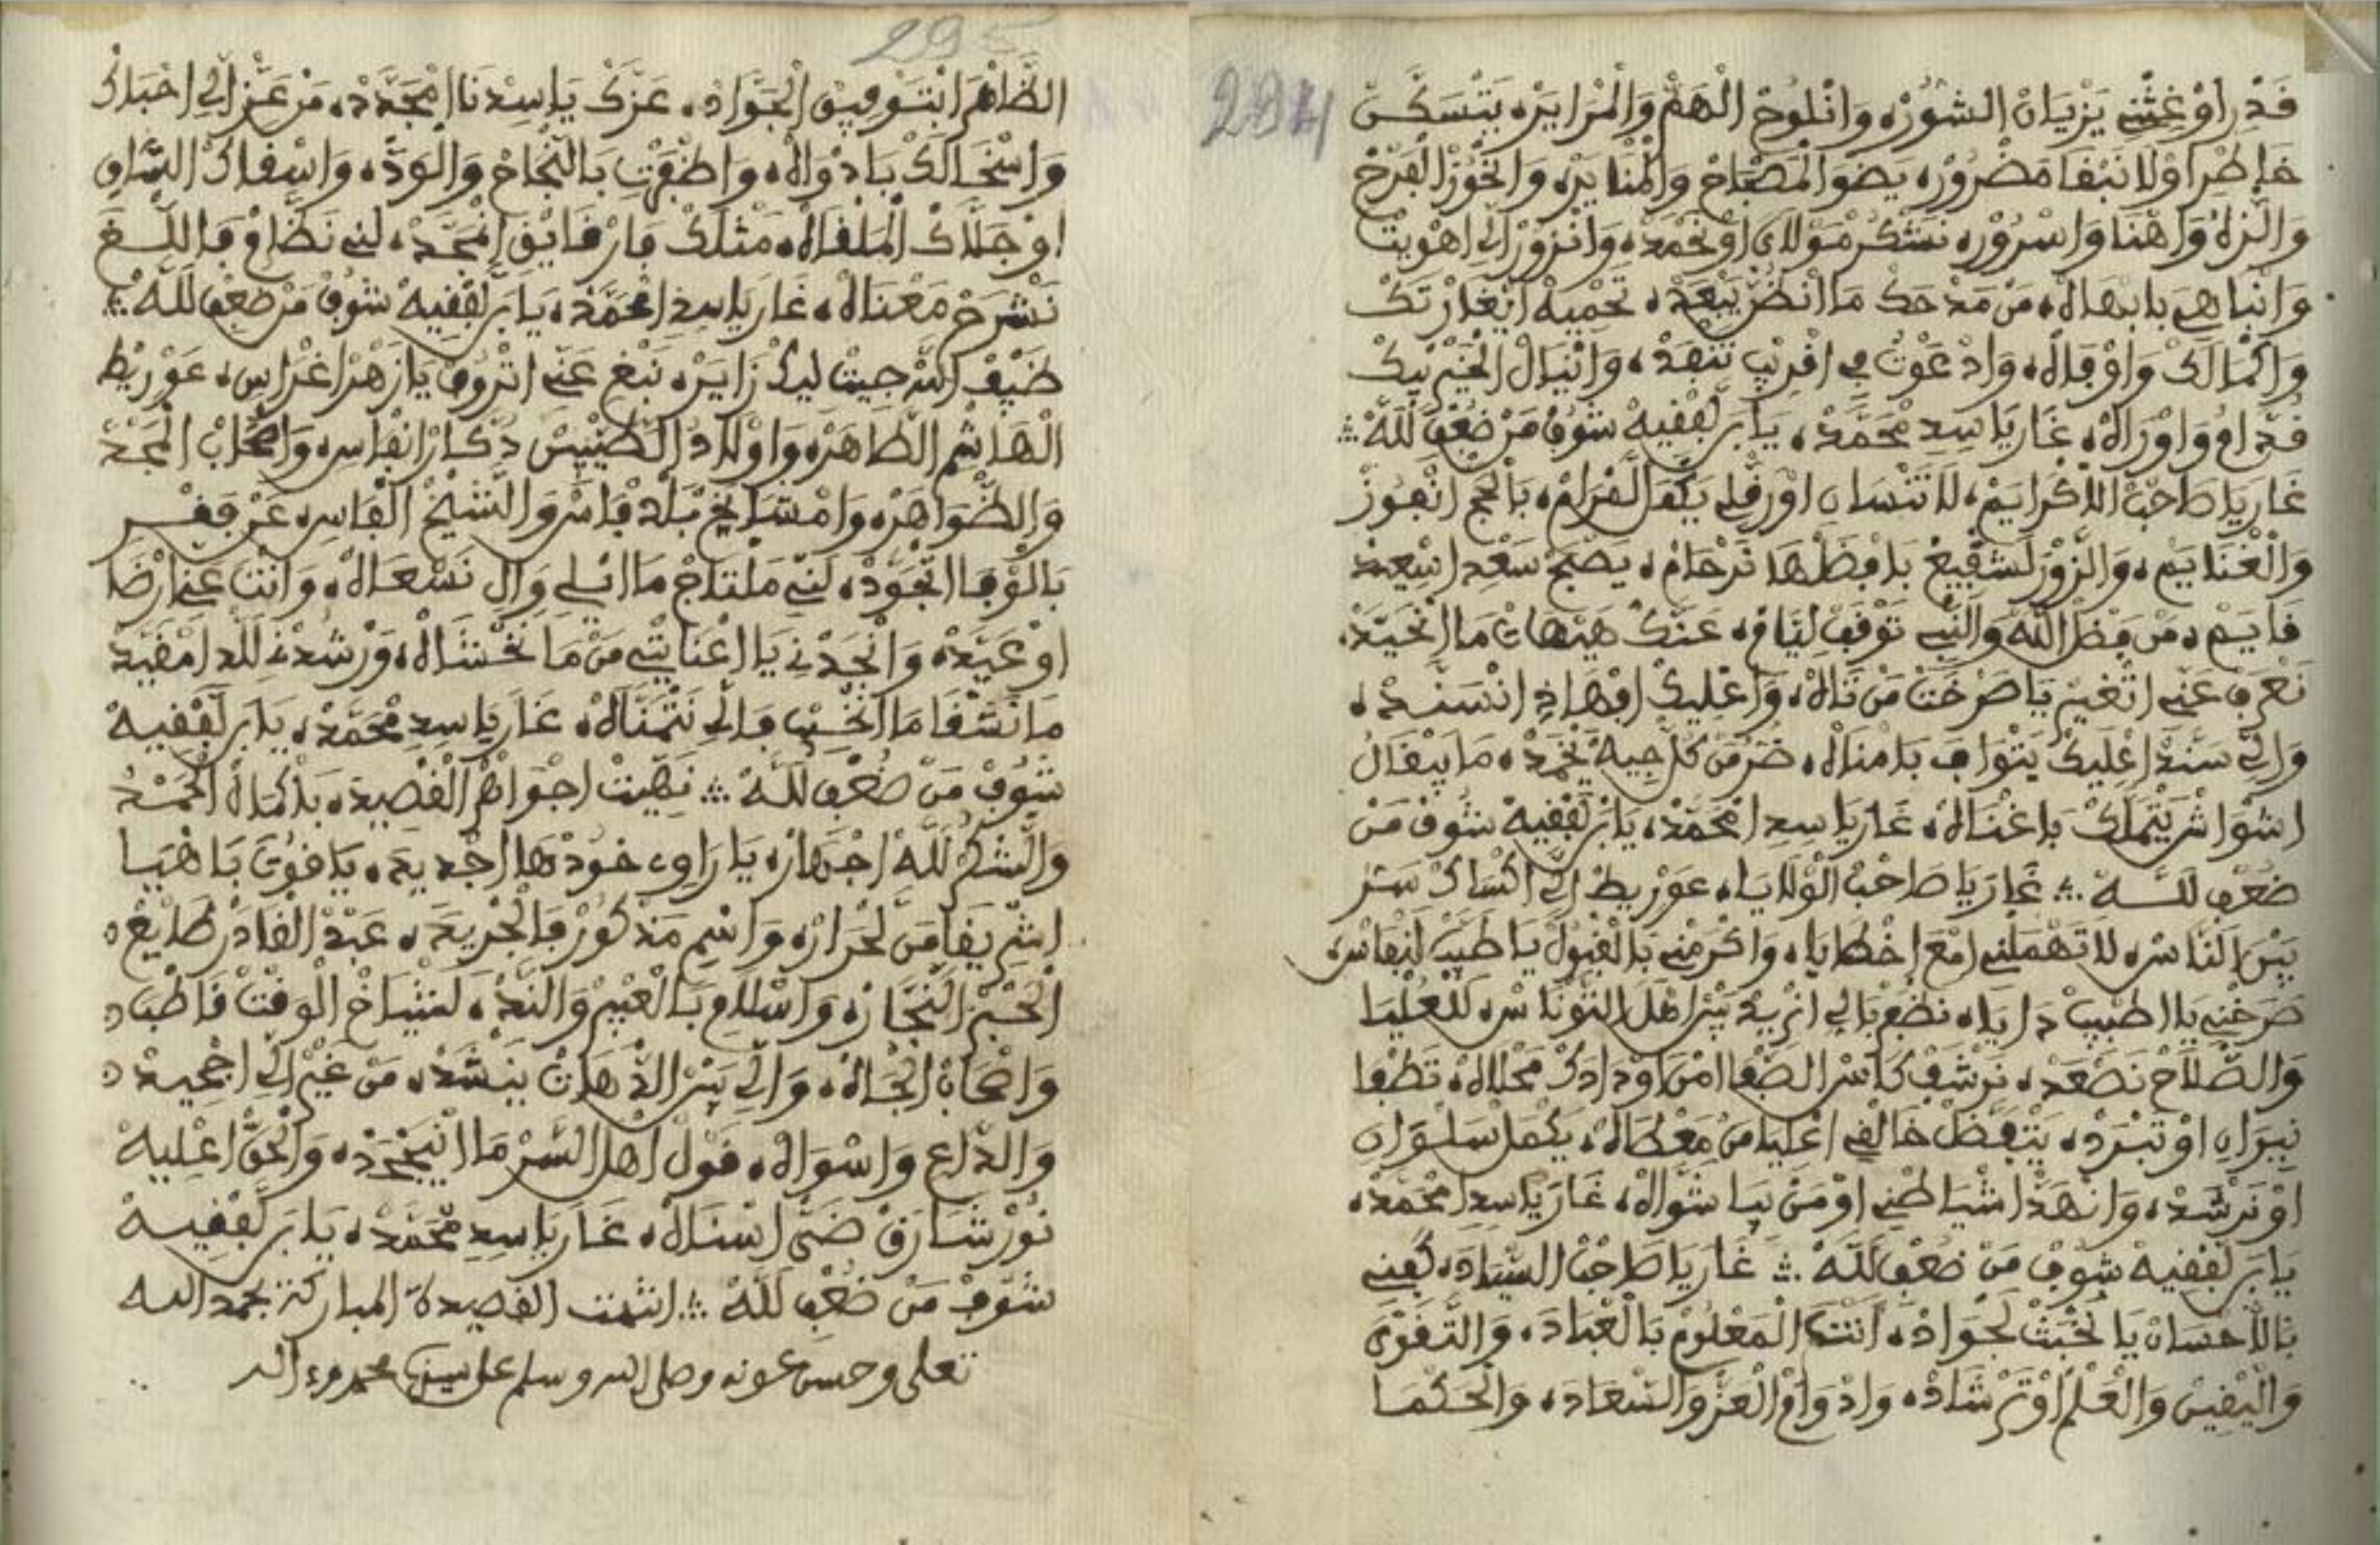 294
فَدْر اوْ غِثْنِي يَزْيَانْ الشُّوْرْ، وَانْلُوحْ الْهَمْ وَالْمْرَايَرْ، يَتْسَكَّنْ
خَاطْرِ اوْلَا نَبْفَا مَضْرُورْ، يَضْوَ الْمَصْبَاحْ وَالْمْنَايَرْ، وَانْحُوزْ الْفَرْحْ
وَالنّزَهْ وَاهْنَا وَاسْرُورْ، نَشْكُرْ مُولَايَ اوْ نَحْمَدْ، وَانْزُورْ الِّي اهْوِيتْ
وَانْبَاهِي بَابْهَاهْ، مَنْ مَدْحَكْ مَا انْظُنّ يَبْعَدْ، تَحْمِيهْ انْغَارْتَكْ
وَاكْمَالَكْ وَاوْفَاهْ، وَادْعَوْتُ فِي افْرِيبْ تَنْفَدْ، وَانْيَالْ الْخَيْرْ بِيكْ
فُدَّامُ وَاوْرَاهْ، غَارَ يَا سِيدِ مْحَمَّدْ، يَا بَن لَفْفِيهْ شُوفْ مَنْ ضُعْفِ لَلَّهْ ∴
غَارَ يَا صَاحَبْ اللَّاكْرَايَمْ، لَا تَنْسَانِ اوْرَفْنِي يَكْمَلْ لَمْرَامْ، بَالْحَجّ انْفُوزْ
وَالْغْنَايَمْ، وَالنّزُورْ لَشْفِيعْ بَافْضَلْهَا نَرْحَامْ، يَصْبَحْ سَعْدِ اسْعِيدْ
فَايَمْ، مَنْ فَضْلْ اللَّهْ وَالنّبِي نَوْفَفْ لِيَامْ، عَنَّكْ هَيْهَاتْ مَا انْحَيَّدْ،
نَعْرَفْ عَنِّي اتْغِيرْ يَا صَرْخَتْ مَنْ تَاهْ، وَاعْلِيكْ افْهَاذِ انْسَنَّدْ،
وَالِّي سَنَّدْ اعْلِيكْ يَتْوَافَى بَامْنَاهْ، ضُرّ مَنْ كُلّ جِيهْ يَخْمَدْ، مَا يَبْفَالُ
اشْوَاشْ يَتْمَلَّكْ بَاغْنَاهْ، غَارَ يَا سِيدِ امْحَمَّدْ، يَا بَنْ لَفْفِيهْ شُوفْ مَنْ
ضُعْفِ لَلَّهْ ∴ غَارَ يَا صَاحَبْ الْوْلَايَا، عَوْرِيطْ الِّي اكْسَاكْ سَتْر
بِينْ النَّاسْ، لَا تَهْمَلْنِي امْعَ اخْطَايَا، وَاكْرَمْنِي بَالْقْبُولْ يَا طَيَّبْ لَنْفَاسْ،
صَرَّخْنِي يَا اطْبِيبْ دَايَا، نَطْمَعْ بَالِي انْرِيدْ بِينْ اهْلَ التُّونَاسْ، لَلْعُلْيَا
وَالصّْلَاحْ نَصْعَدْ، نَرْشَفْ كَاسْ الصّْفَا امْنْ اوْدَادَكْ مَحْلَاهْ، تَطْفَا
نِيرَانِ اوْ تَبْرَدْ، يَتْفَضَّلْ خَالْفِي اعْلِيَا مَنْ مَعْطَاهْ، يَكْمَلْ سَلْوَانِ
اوْ نَرْشَدْ، وَانْهَدّ اشْيَاطْنِي اوْ مَنْ بِيَا شَوَّاهْ، غَارَ يَا سِيدِ امْحَمَّدْ،
يَا بَنْ لَفْفِيهْ شُوفْ مَنْ ضُعْفِ لَلَّهْ ∴ غَارَ يَا صَاحَبْ السّْيَادَ، كُفْنِي
بَالْاحْسَانْ يَا نُخْبَتْ لَجْوَادْ، انْتَ الْمَعْلُومْ بَالْعْبَادَ، وَالتَّفْوَى
وَالْيْفِينْ وَالْعَلْمْ اوْ تَرْشَادْ، وَادْوَامْ الْعَزّ وَالسّْعَادَ، وَالْحَكْمَا
295
الظَّاهْرَ ابْتَوْفِيقْ الْجَوَّادْ، عَزَّكْ يَا سِيدْنَا امْجَدَّدْ، مَنْ عَزّ الِّي احْبَاكْ
وَاسْخَالَكْ بَادْوَاهْ، وَاظْفَرْتِ بَالنّْجَاحْ وَالْوَدّ، وَاسْفَاكْ السَّاقِ
اوْ جَلَّاكْ الْمَلْفَاهْ، مَثْلَكْ فَارْفَايَقْ امْجَّدْ، لَنِّي نَظَّامْ فَاللّْغَى
نَشْرَحْ مَعْنَاهْ، غَارَ يَا سِيدِ امْحَمَّدْ، يَا بَن لَفْفِيهْ شُوفْ مَنْ ضُعْفِ لَلَّهْ ∴
ضَيْف اللَّهْ جِيتْ لِيكْ زَايَرْ، نَبْغِ عَنِّي اتْرُوفْ يَا زَهْرْ اغْرَاسِ، عَوْرِيطْ
الْهَاشْمِ الطَّاهَرْ، وَاوْلَادُ الطَّيِّبِينْ دُكَّارْ انْفَاسِ، وَاصْحَابْ الْمَجْدْ
وَالظّْوَاهَرْ، وَامْشَايَخْ بْلَدْ فَاسْ وَالشّيخْ الْفَاسِ، عَزّ فَفْسِ
بَالْوْفَا اتْجَوَّدْ، لَنِّي مَلْتَاجْ مَا انْلِي وَالِي نَسْعَاهْ، وَانْتَ عَنِّي ارْضَا
اوْ عَيَّدْ، وَانْجَدْنِي يَا اعْنَايْتِي مَنْ مَا نَخْشَاهْ، وَرْشُدْنِي لَلدّ امْفَيَّدْ
مَا نَشْفَا مَا انْخِيبْ فَالِّي نَتْمَنَّاهْ، غَارَ يَا سِيدِ مْحَمَّدْ، يَا بَن لَفْفِيهْ
شُوفْ مَنْ ضُعْفِ لَلَّهْ ∴ نَهِّيتْ اجْوَاهْرْ الْفْصِيدَ، بَاكْمَالْ الْحَمْدْ
وَالشُّكْرُ لَلَّهْ اجْهَارْ، يَا رَاوِي خُودْهَا اجْدِيدَ، يَافُوتَ بَاهْيَا
اشْرِيفَا مَنْ لَحْرَارْ، وَاسْمِ مَذْكُورْ فَالْجْرِيدَ، عَبْدْ الْفَادَرْ طَايَعْ
الْحَبْرْ النَّجَّارْ، وَاسْلَامِ بَالْعْبِيرْ وَالنَّدّ، لَشْيَاخْ الْوَفْتْ فَاطْبَا
وَاصْحَابْ الْجَاهْ، وَالِّي بَيْنْ الدّْهَاتْ يَنْشَدْ، مَنْ غِيرْ الِّي اجْحِيدْ
وَالدَّاعِ وَاسْوَاهْ، فَوْلْ اهْلْ السّرّ مَا انْيَجْحَدْ، وَالْحَقّ اعْلِيهْ
نُورْ شَارَقْ ضَيّ اسْنَاهْ، غَارَ يَا سِيدِ مْحَمَّدْ، يَا بَن لَفْفِيهْ
شُوفْ مَنْ ضُعْفِ لَلَّهْ ∴ انتهت الفصيدة المباركة بحمد الله
تعلى وحسن عونه وصلى الله وسلم على سيدنا محمد وءاله